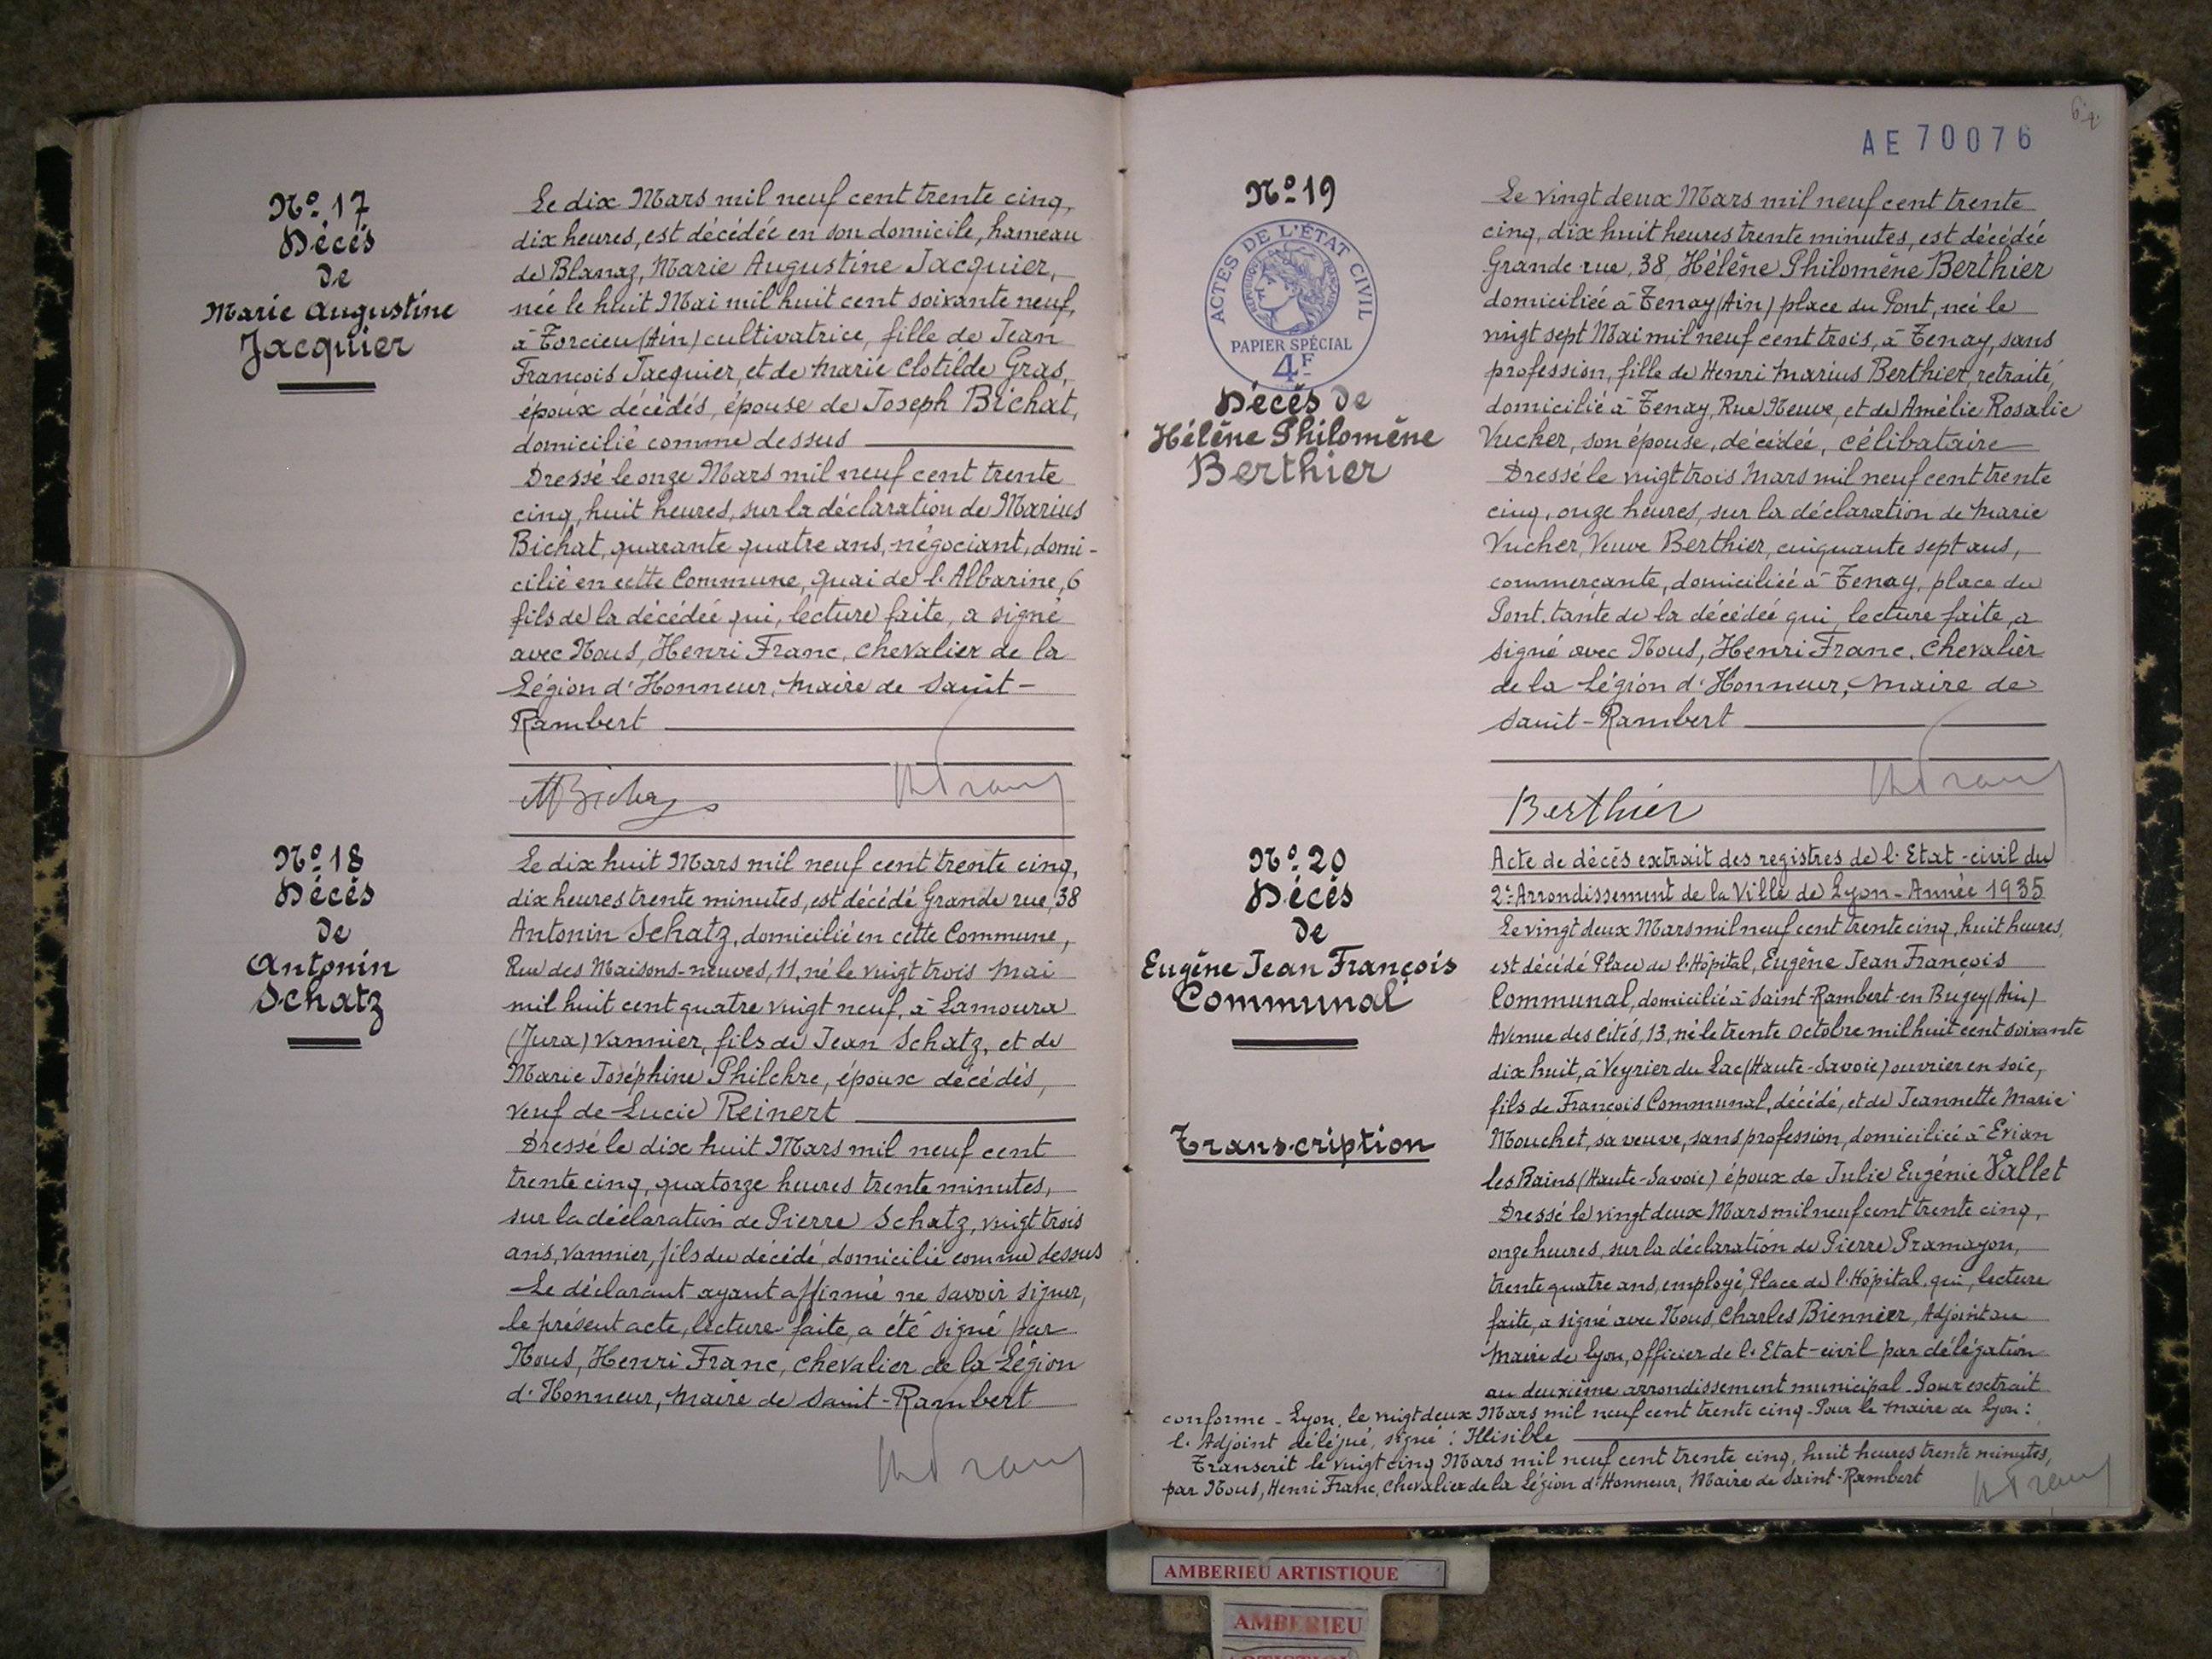 N° 17
Décès
de
Marie Augustine
Jacquier
Le dix Mars mil neuf cent trente cinq,
dix heures, est décédée en son domicile, hameau
de Blanaz, Marie Augustine Jacquier,
née le huit Mai mil huit cent soixante neuf,
à Torcieu (Ain) cultivatrice, fille de Jean
François Jacquier, et de Marie Clotilde Gras,
époux décédés, épouse de Joseph Bichat,
domicilié comme dessus
Dressé le onze Mars mil neuf cent trente
cinq, huit heures, sur la déclaration de Marius
Bichat, quarante quatre ans, négociant, domi-
cilié en cette Commune, quai de l'Albarine, 6
fils de la décédée qui, lecture faite, a signé
avec Nous, Henri Franc, Chevalier de la
Légion d'Honneur, Maire de Saint-
Rambert
N° 18
Décès
de
Antonin
Schatz
Le dix huit Mars mil neuf cent trente cinq,
dix heures trente minutes, est décédé Grande rue, 38
Antonin Schatz, domicilié en cette Commune,
Rue des Maisons-neuves, 11, né le vingt trois Mai
mil huit cent quatre vingt neuf, à Lamoura
(Jura) vannier, fils de Jean Schatz, et de
Marie Joséphine Philckre, époux décédés,
veuf de Lucie Reinert
Dressé le dix huit Mars mil neuf cent
trente cinq, quatorze heures trente minutes,
sur la déclaration de Pierre Schatz, vingt trois
ans, vannier, fils du décédé, domicilié comme dessus
Le déclarant ayant affirmé ne savoir signer,
le présent acte, lecture faite, a été signé par
Nous, Henri Franc, Chevalier de la Légion
d'Honneur, Maire de Saint-Rambert
AE 70076
N° 19
ACTES DE L'ÉTAT CIVIL
RÉPUBLIQUE FRANÇAISE
PAPIER SPÉCIAL
4F
Décès de
Hélène Philomène
Berthier
Le vingt deux Mars mil neuf cent trente
cinq, dix huit heures trente minutes, est décédée
Grande rue, 38 Hélène Philomène Berthier
domiciliée à Tenay (Ain) place du Pont, née le
vingt sept Mai mil neuf cent trois, à Tenay, sans
profession, fille de Henri Marius Berthier, retraité,
domicilié à Tenay, Rue Neuve, et de Amélie Rosalie
Vucher, son épouse, décédée, célibataire
Dressé le vingt trois Mars mil neuf cent trente
cinq, onze heures, sur la déclaration de Marie
Vucher, Veuve Berthier, cinquante sept ans,
commerçante, domiciliée à Tenay, place du
Pont, tante de la décédée qui, lecture faite, a
signé avec Nous, Henri Franc, Chevalier
de la Légion d'Honneur, Maire de
Saint-Rambert
Berthier
N° 20
Décès
de
Eugène Jean François
Communal
Transcription
Acte de décès extrait des registres de l'Etat-civil du
2e Arrondissement de la Ville de Lyon - Année 1935
Le vingt deux Mars mil neuf cent trente cinq, huit heures,
est décédé Place de l'Hôpital, Eugène Jean François
Communal, domicilié à Saint-Rambert-en Bugey (Ain)
Avenue des Cités, 13, né le trente Octobre mil huit cent soixante
dix huit, à Veyrier du Lac (Haute-Savoie) ouvrier en soie,
fils de François Communal, décédé, et de Jeannette Marie
Mouchet, sa veuve, sans profession, domiciliée à Evian
les Bains (Haute-Savoie) époux de Julie Eugénie Vallet
Dressé le vingt deux Mars mil neuf cent trente cinq,
onze heures, sur la déclaration de Pierre Pramayon,
trente quatre ans, employé, Place de l'Hôpital, qui, lecture
faite, a signé avec Nous, Charles Biennier, Adjoint au
Maire de Lyon, officier de l'Etat-civil par délégation
au deuxième arrondissement municipal - Pour extrait
conforme - Lyon, le vingt deux Mars mil neuf cent trente cinq - Pour le Maire de Lyon :
l'Adjoint délégué, signé : Illisible
Transcrit le vingt cinq Mars mil neuf cent trente cinq, huit heures trente minutes,
par Nous, Henri Franc, Chevalier de la Légion d'Honneur, Maire de Saint-Rambert
AMBERIEU ARTISTIQUE
AMBERIEU
ARTISTIQUE